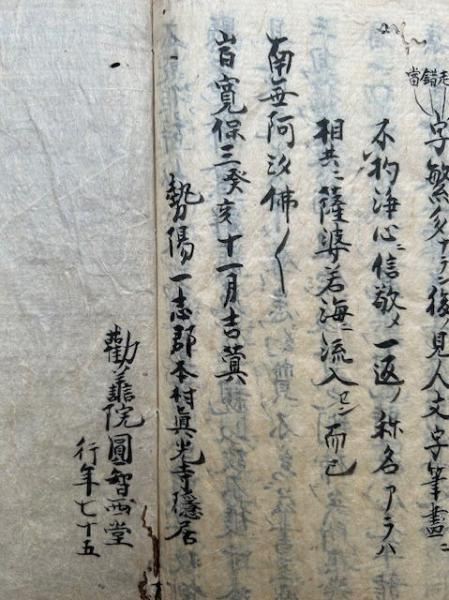 走錯當
字繁多ナラン後ノ見人文字筆畫ニ
不拘浄心ニ信敬メ一返ノ称名アラハ
相共ニ薩婆若海ニ流入セン而已
南無阿弥佛
旹寛保三癸亥十一月吉蓂
勢陽一志郡本村眞光寺隠居
勸善院圓智西堂
行年七十五